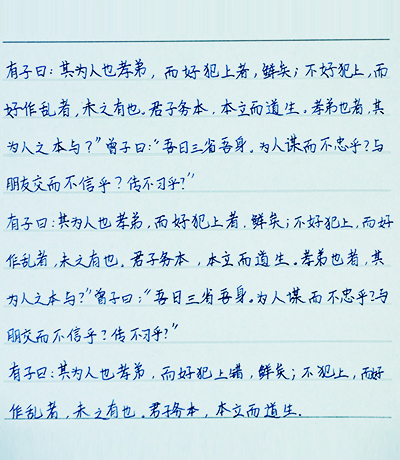 有子曰：其为人也孝弟，而好犯上者，鲜矣；不好犯上，而
好作乱者，未之有也。君子务本，本立而道生。孝弟也者，其
为人之本与？”曾子曰：“吾日三省吾身。为人谋而不忠乎？与
朋友交而不信乎？传不习乎？”
有子曰：其为人也孝弟，而好犯上者，鲜矣；不好犯上，而好
作乱者，未之有也。君子务本，本立而道生。孝弟也者，其
为人之本与？”曾子曰：“吾日三省吾身。为人谋而不忠乎？与
朋交而不信乎？传不习乎？”
有子曰：其为人也孝弟，而好犯上错，鲜矣；不犯上，而好
作乱者，未之有也。君子务本，本立而道生。